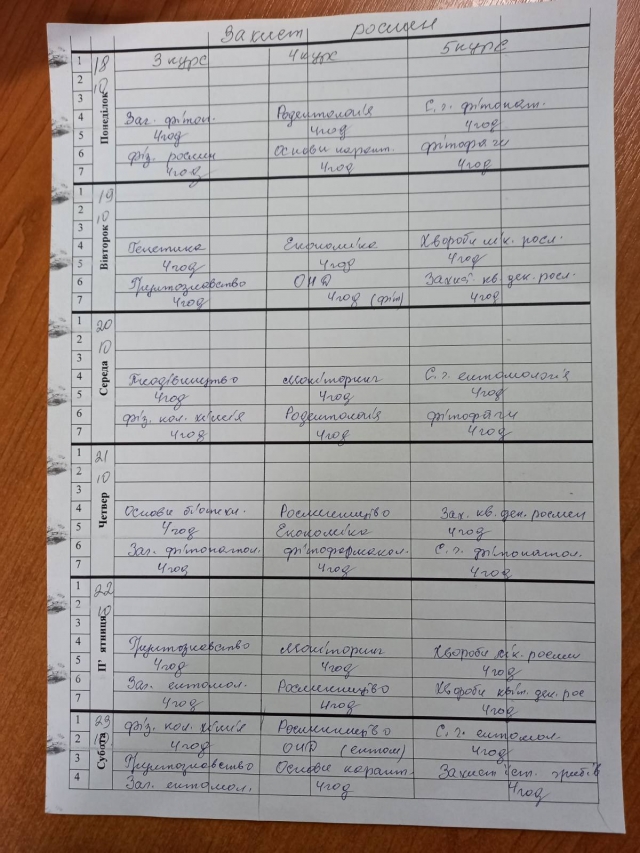 Захист рослин
3 курс 4 курс 5 курс
Понеділок 18 10
1
2
3
4 Заг. фітоп. Родентологія С. г. фітопат.
5 4год 4год 4год
6 фіз. рослин Основи карант. фітофаги
7 4год 4год 4год
Вівторок 19 10
1
2
3
4 Генетика Економіка Хвороби лік. росл.
5 4год 4год 4год
6 Грунтознавство ОНД Захист кв. дек. росл.
7 4год 4год (фіт) 4год
Середа 20 10
1
2
3
4 Плодівництво Моніторинг С. г. ентомологія
5 4год 4год 4год
6 фіз. кол. хімія Родентологія фітофаги
7 4год 4год 4год
Четвер 21 10
1
2
3
4 Основи біотехн. Рослинництво Зах. кв. дек. рослин
5 4год Економіка 4год
6 Заг. фітопатол. фітофармакол. С. г. фітопатол.
7 4год 4год 4год
П' ятниця 22 10
1
2
3
4 Грунтознавство Моніторинг Хвороби лік. рослин
5 4год 4год 4год
6 Заг. ентомол. Рослинництво Хвороби квіт. дек. рос
7 4год 4год 4год
Субота 23
1 фіз. кол. хімія Рослинництво С. г. ентомол.
2 4год ОНД (ентом) 4год
3 Грунтознавство Основи карант. Захист їст. грибів
4 Заг. ентомол. 4год 4год